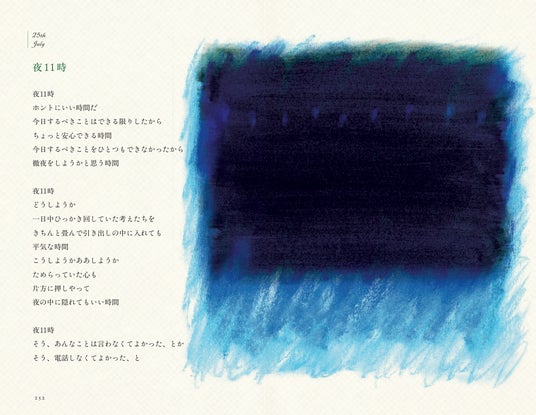 25th
July
夜11時
夜11時
ホントにいい時間だ
今日するべきことはできる限りしたから
ちょっと安心できる時間
今日するべきことをひとつもできなかったから
徹夜をしようかと思う時間
夜11時
どうしようか
一日中ひっかき回していた考えたちを
きちんと畳んで引き出しの中に入れても
平気な時間
こうしようかああしようか
ためらっていた心も
片方に押しやって
夜の中に隠れてもいい時間
夜11時
そう、あんなことは言わなくてよかった、とか
そう、電話しなくてよかった、と
152